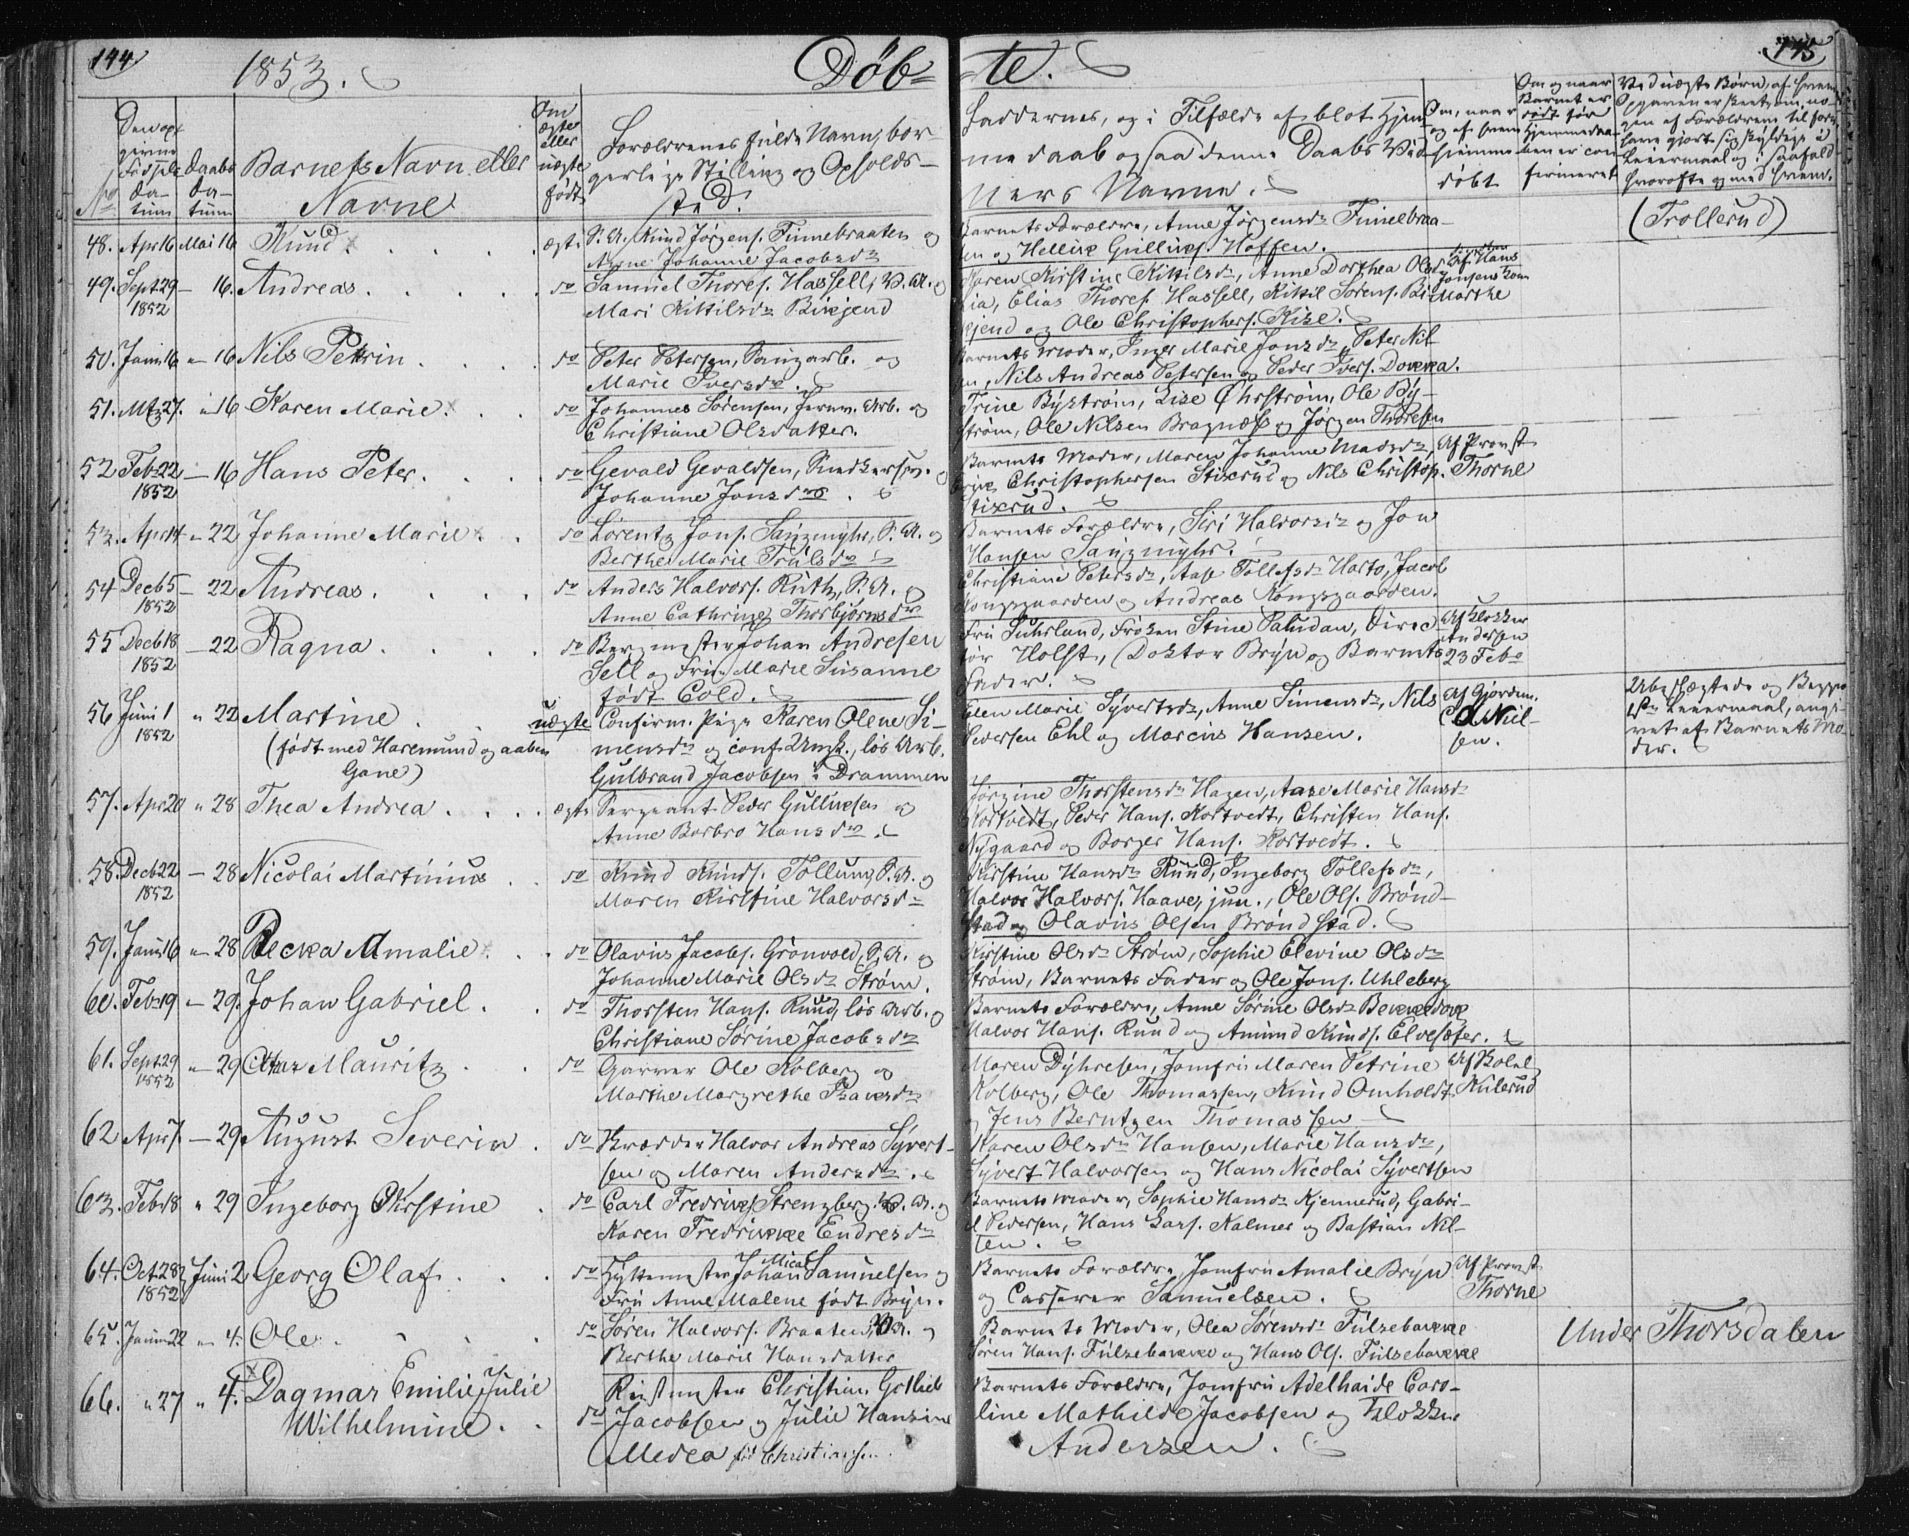 144 1853. Døb=te. 145
No
Den opgivne Fødselsdatum
Daabsdatum
Barnets Navn eller Navne
Om ægte eller uægte født
Forældrenes fulde Navn, borgerlige Stilling og Opholdssted.
Faddernes, og i Tilfælde af blot Hjemmedaab ogsaa denne Daabs Vidners Navne.
Om, naar og af hvem hjemmedøbt
Om og naar Barnet er født før Hjemmedaaben er confirmeret
48. Apr 16 Mai 16 Knud ægte S. A. Knud Jørgens. Finnebraaten og
Anne Johanne Jacobsdr
Barnets Forældre, Anne Jørgensdr Finnebraa-
en og Hellik Gulliks. Hoffen. (Trollerud)
49. Sept. 29 1852 — 16. Andreas do Samuel Thores. Hassell, V. A. og
Mari Kittilsdr Bikjend
Karen Kirstine Kittilsdr, Anne Dorthea Olsdr
ia, Elias Thores. Hassell, Kittil Sørens. Bi-
kjend og Ole Christophers. Kise.
Hans Jensens Kone Marthe
50. Janu 16 " 16 Nils Petrin do Peter Petersen, Saugarb. og
Marie Iversdr.
Barnets Moder, Inger Marie Jonsdr, Peter Nil-
en, Nils Andreas Petersen og Peder Ivers. Dokka.
51. Mtz 27. " 16 Karen Marie. do Johannes Sørensen, Jernv. Arb. og
Christiane Olsdatter.
Trine Byström, Lise Øhrström, Ole By-
ström, Ole Nilsen Bragnæss og Jørgen Thoresen
52 Feb 22 1852 — 16 Hans Peter. do Gerald Geraldsen, Snedkersv. og
Johanne Jonsdr.
Barnets Moder, Maren Johanne Madsdr,
Christophersen Stixrud og Nils Christop.
Stixrud.
Af Provst Thorne
53. Apr 14 " 22 Johanne Marie. do Lorentz Jons. Saugmyhr, S. A. og
Berthe Marie Trulsdr
Barnets Forældre, Siri Halvorsdr og Jon
Hansen Saugmyhr.
54 Decb 5 1852 — 22 Andreas. do Anders Halvors. Ruth, S. A. og
Anne Cathrine Thorbjørnsdr
Christiane Petersdr, Aase Tollefsdr Harto, Jacob
Kongsgaarden og Andreas Kongsgaarden.
55 Decb 18 1852 — 22 Ragna. do Bergmester Johan Andresen
Sell og Fru Marie Susanne
født Cold.
Fru Suhrland, Frøken Stine Paludan, Direc-
tør Holst, Doktor Bryn og Barnets
Fader.
Af Klokker Andersen 23 Febr
56 Juni 1 1852 " 22 Martine. (født med Haremund og aaben Gane) uægte Confirm. Pige Karen Olene Si-
mensdr og conf. Ungk., løs Arb.
Gulbrand Jacobsen i Drammen
Elen Marie Syvertsdr, Anne Simensdr, Nils
Pedersen Ehl og Marcus Hansen.
Af Gjordem. C. d Niel-
sen.
Ubeslægtede og Begges
1ste Leiermaal, angi-
vet af Barnets Mo-
der.
57. Apr 20 " 28 Thea Andrea. ægte Sergeant Peder Gulliksen og
Anne Barbro Hansdr.
Jørgine Thorstensdr Hagen, Aase Marie Hansdr
Kortvedt, Peder Hans. Kortvedt, Christen Hans.
Nygaard og Borger Hans. Kortvedt.
58. Decb 22 1852 — 28 Nicolai Martinius do Knud Knuds. Tollung, S. A. og
Maren Kirstine Halvorsdr
Kirstine Hansdr Ruud, Ingeborg Tollefsdr,
Halvor Halvors. Haave, jun., Ole Ols. Brønd-
stad og Olavus Olsen Brøndstad.
59. Janu 16 " 28 Recka Amalie. do Olavus Jacobs. Grønvold, S. A. og
Johanne Marie Olsdr Strøm.
Kirstine Olsdr Strøm, Sophie Elevine Olsdr
Strøm, Barnets Fader og Ole Jons. Uhleberg
60. Feb 19 " 29. Johan Gabriel. do Thorsten Hans. Ruud, løs Arb. og
Christiane Sørine Jacobsdr
Barnets Forældre, Anne Sørine Olsdr
Halvor Hans. Ruud og Amund Knuds. Elvesæter.
61. Sept. 29 1852 " 29 Mauritz do Garver Ole Kolberg og
Marthe Margrethe
Maren Dyhresen, Jomfru Maren Petrine
Kolberg, Ole Thomassen, Knud Omholdt
og Jens Berntzen Thomassen
62 Apr 7 — 29 August Severin. do Skrædder Halvor Andreas Syvert-
sen og Maren Andersdr.
Karen Olsdr Hansen, Marie Hansdr,
Syvert Halvorsen og Hans Nicolai Syvertsen
63. Feb 18 " 29 Ingeborg Christine do Carl Fredrik Strengberg V. A. og
Karen Fredrikke Endresdr
Barnets Moder, Sophie Hansdr Kjennerud, Gabri-
el Pedersen, Hans Lars. Kalmer og Bastian Nil-
sen.
64. Oct. 28 1852 Juni 2 Georg Olaf. do Hyttemester Johan Mical Samuelsen og
Fru Anne Malene født Bryn.
Barnets Forældre, Jomfru Amalie Bryn
og Casserer Samuelsen.
Af Provst Thorne
65. Janu 22 " 4. Ole. do Søren Halvors. Braaten, V. A. og
Berthe Marie Hansdatter
Barnets Moder, Olea Sørensdr Fulsebakke
Søren Hans. Fulsebakke og Hans Ols. Fulsebakke
Under Thorsdalen
66. " 27 " 4. Dagmar Emilie Julie
Wilhelmine. do Rustmester Christian Gotlieb
Jacobsen og Julie Hansine
Medea fød Christiansen.
Barnets Forældre, Jomfru Adelhaide Caro-
line Mathilde Jacobsen og Klokker
Andersen.